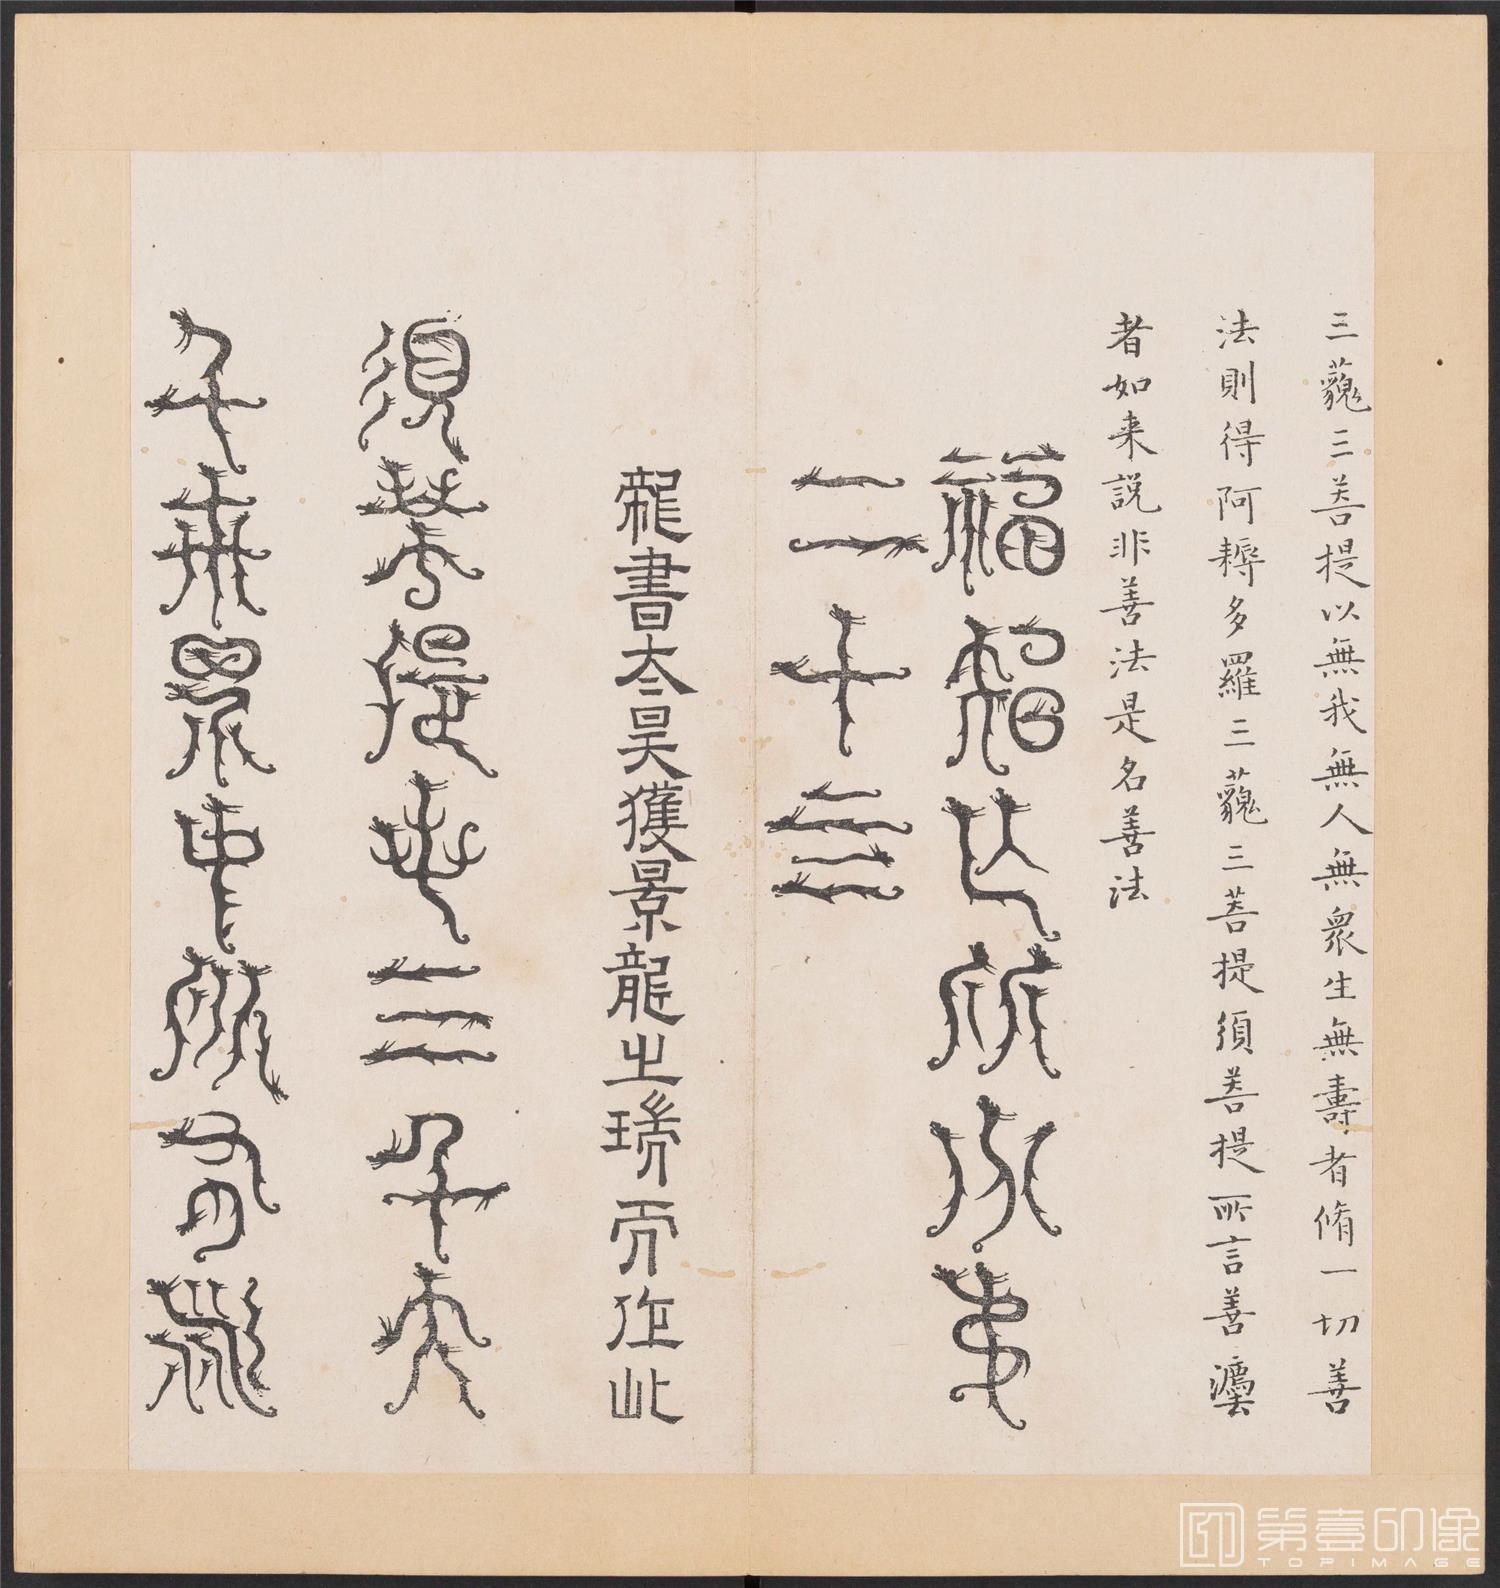 三藐三菩提以無我無人無衆生無壽者脩一切善
法則得阿耨多羅三藐三菩提須菩提所言善灋
者如来説非善法是名善法
福智亡比分弟
二十亖
龍書太昊獲景龍之瑞而作此
須菩提若三千大
千世界中所有諸
第壹印像
TOPIMAGE